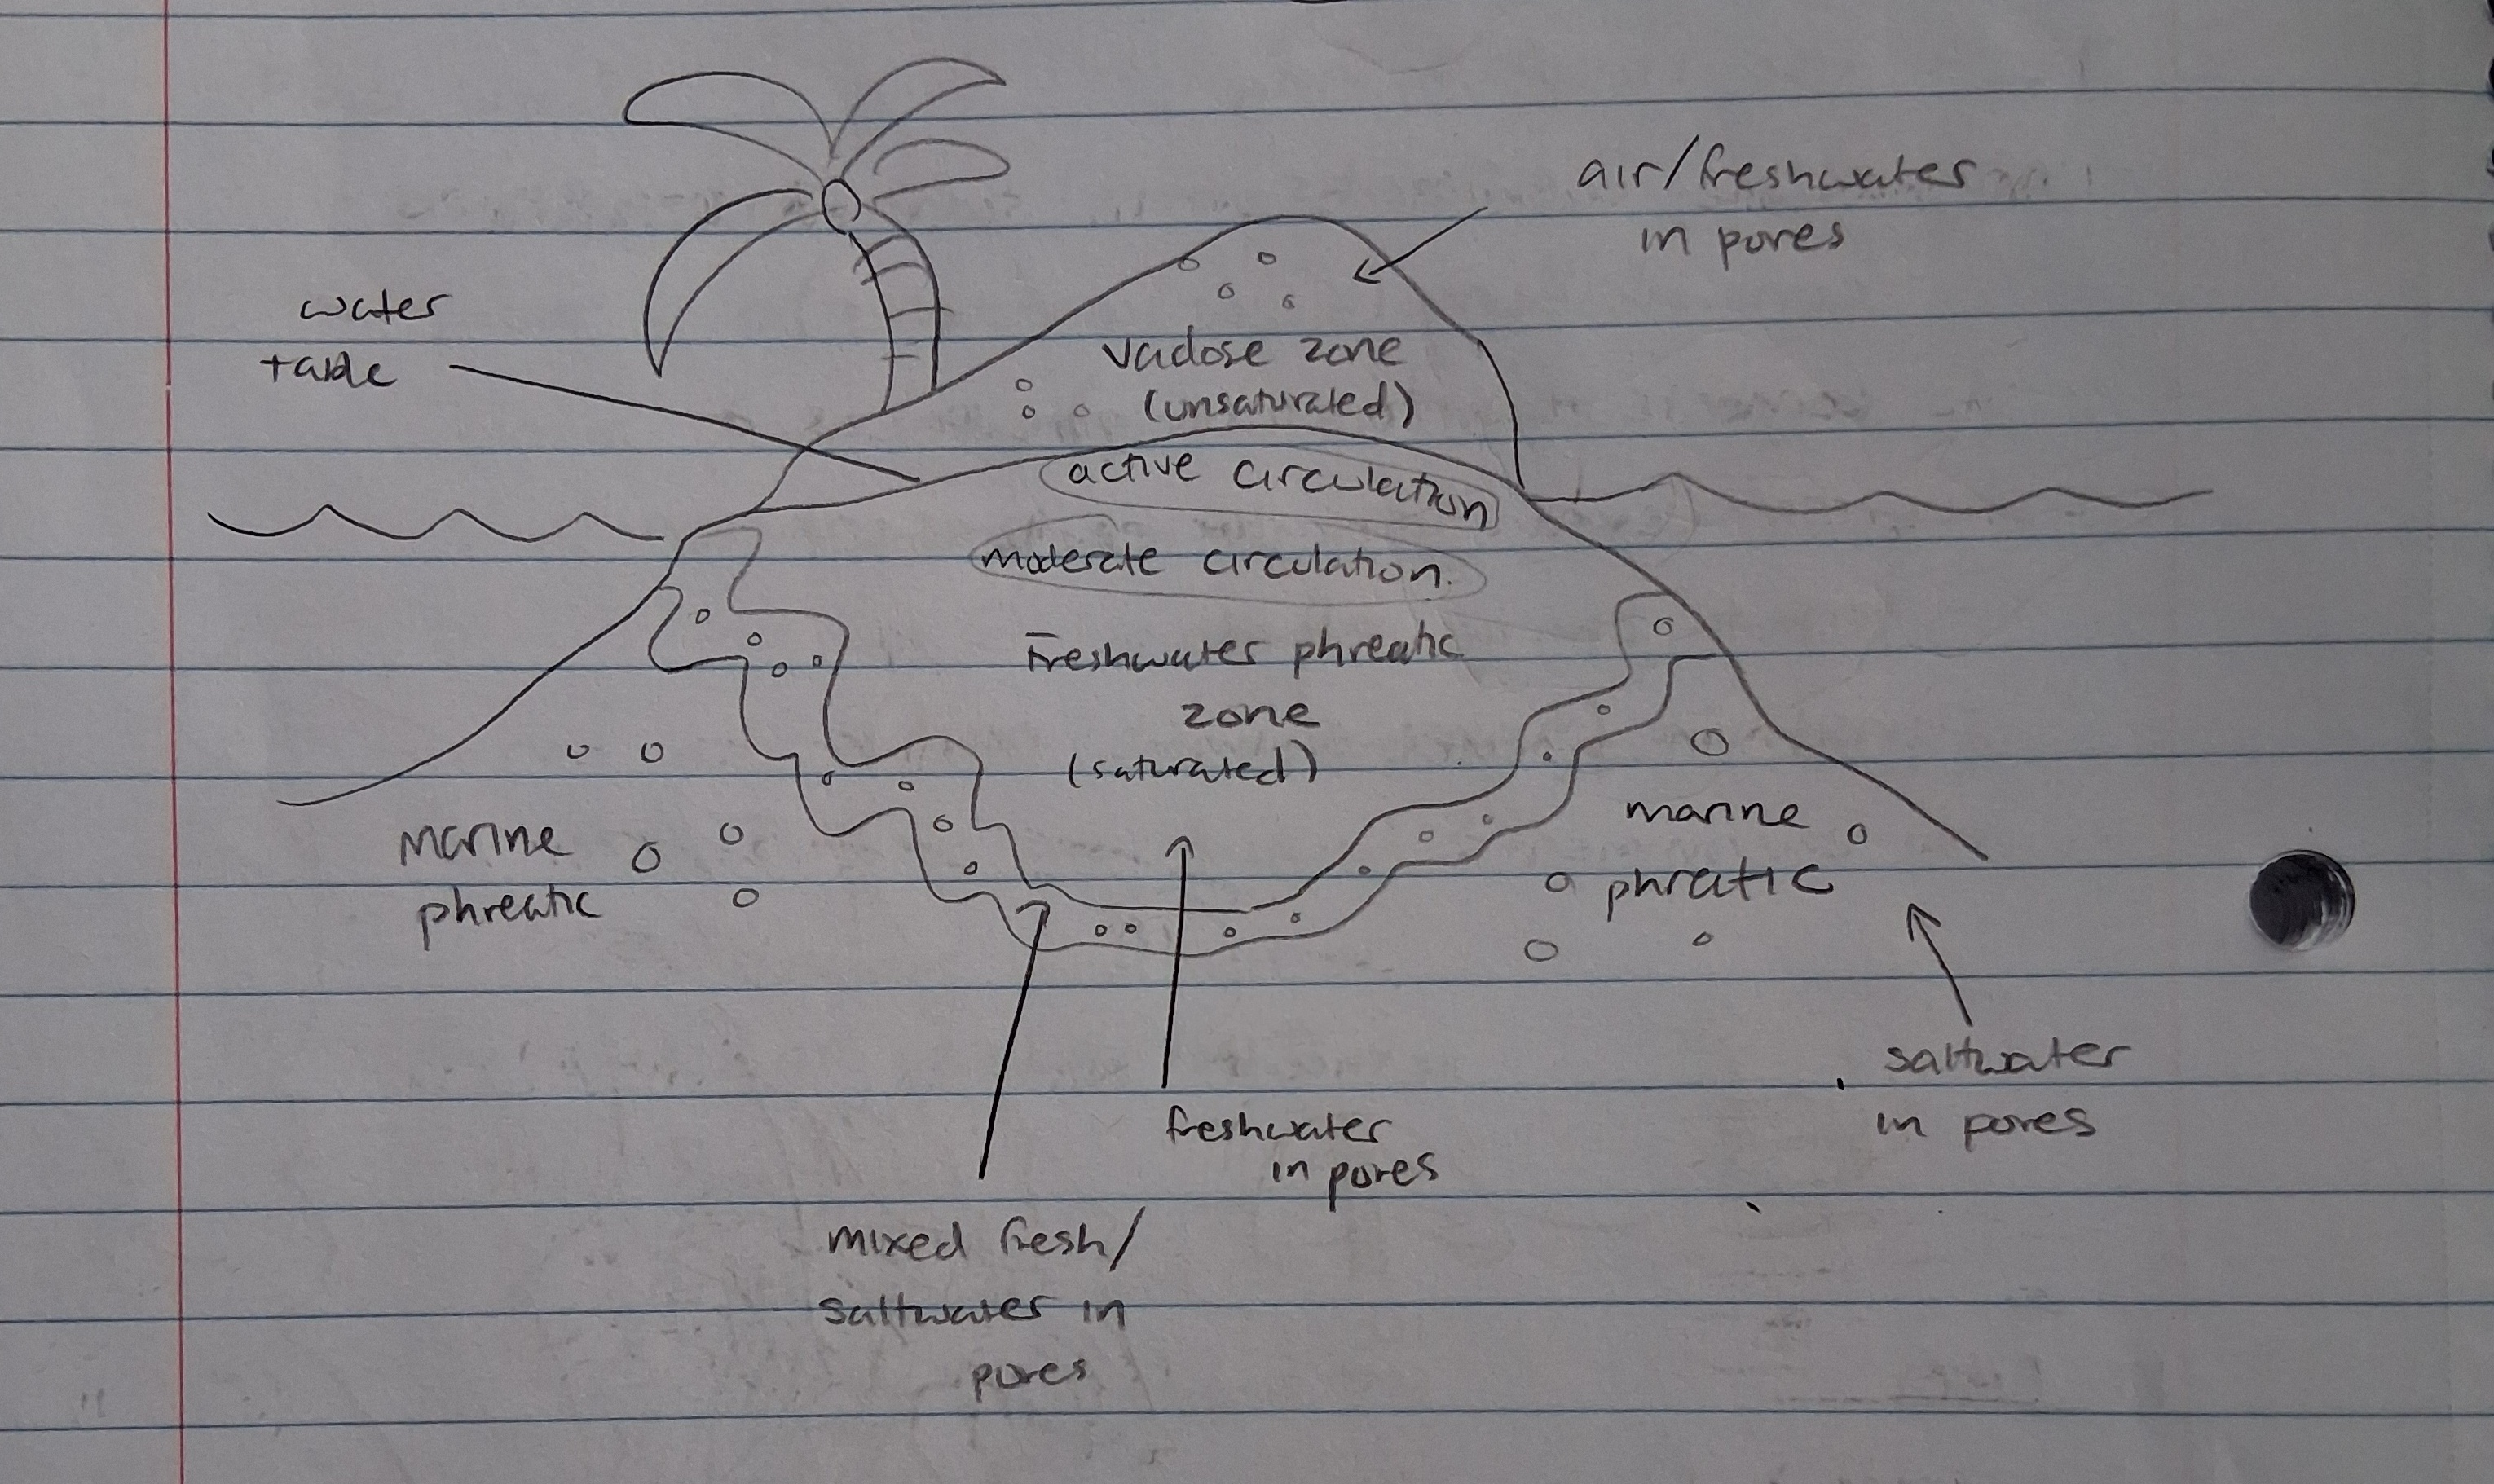 air/freshwater
in pores
water
table
vadose zone
(unsaturated)
active circulation
moderate circulation.
Freshwater phreatic
zone
(saturated)
marine
phreatic
marine
phreatic
saltwater
in pores
freshwater
in pores
mixed fresh/
saltwater in
pores